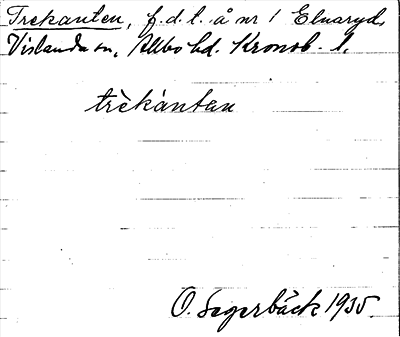 Trekanten, f.d.l. å nr 1 Elnaryd,
Vislanda sn, Allbo hd. Kronob. l.
trèkántan
O. Segerbäck 1935.